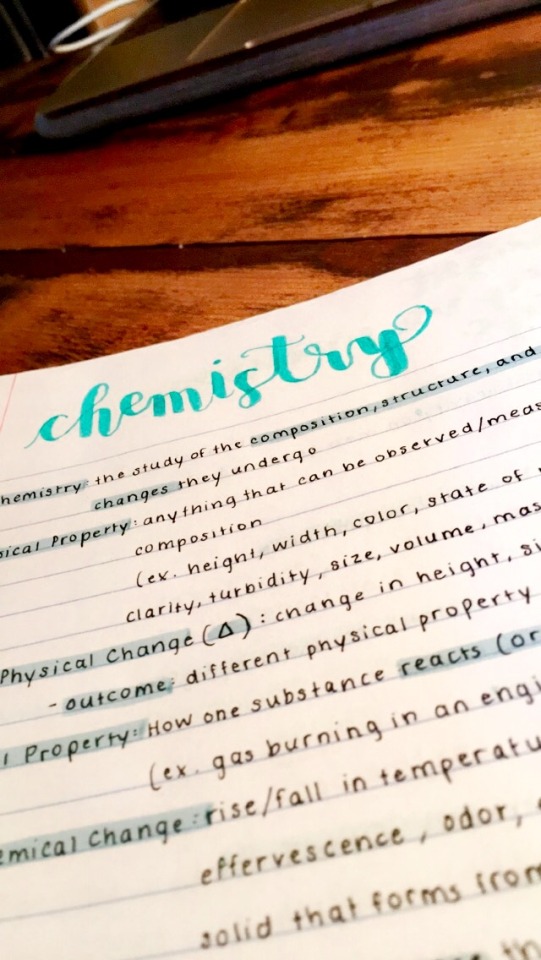 chemistry
hemistry: the study of the composition, structure, and
changes they undergo
sical Property: anything that can be observed/meas
composition
(ex. height, width, color, state of
clarity, turbidity, size, volume, mas
Physical Change (Δ): change in height, si
- outcome: different physical property
l Property: How one substance reacts (or
(ex. gas burning in an engi
emical Change: rise/fall in temperatu
effervescence, odor,
solid that forms from